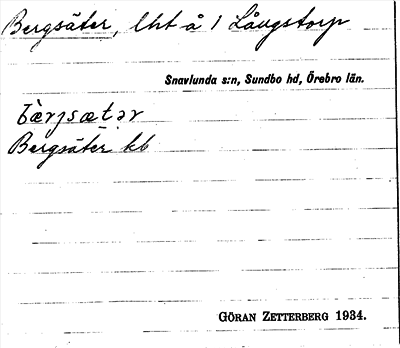 Bergsäter, lht å 1 Långstorp
Snavlunda s:n, Sundbo hd, Örebro län.
bæ̀rjsætər
Bergsäter kb
GÖRAN ZETTERBERG 1934.